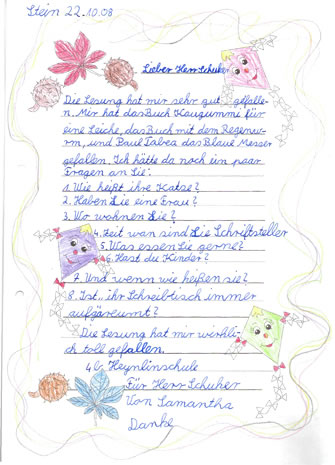 Stein 22.10.08
Lieber Herr Schuker
Die Lesung hat mir sehr gut gefalle-
n. Mir hat das Buch Kaugummi für
eine Leiche, das Buch mit dem Regenwu-
rm, und Paul Tabea das Blaue Messer
gefallen. Ich hätte da noch ein paar
Fragen an Sie:
1. Wie heißt ihre Katze?
2. Haben Sie eine Frau?
3. Wo wohnen Sie?
4. Zeit wan sind Sie Schriftsteller
5. Was essen Sie gerne?
6. Hast du Kinder?
7. Und wenn wie heißen sie?
8. Ist „ihr Schreibtisch immer
aufgäreumt?
Die Lesung hat mir wirkli-
ch toll gefallen.
4b Heynlinschule
Für Herr Schuher
Von Samantha
Danke